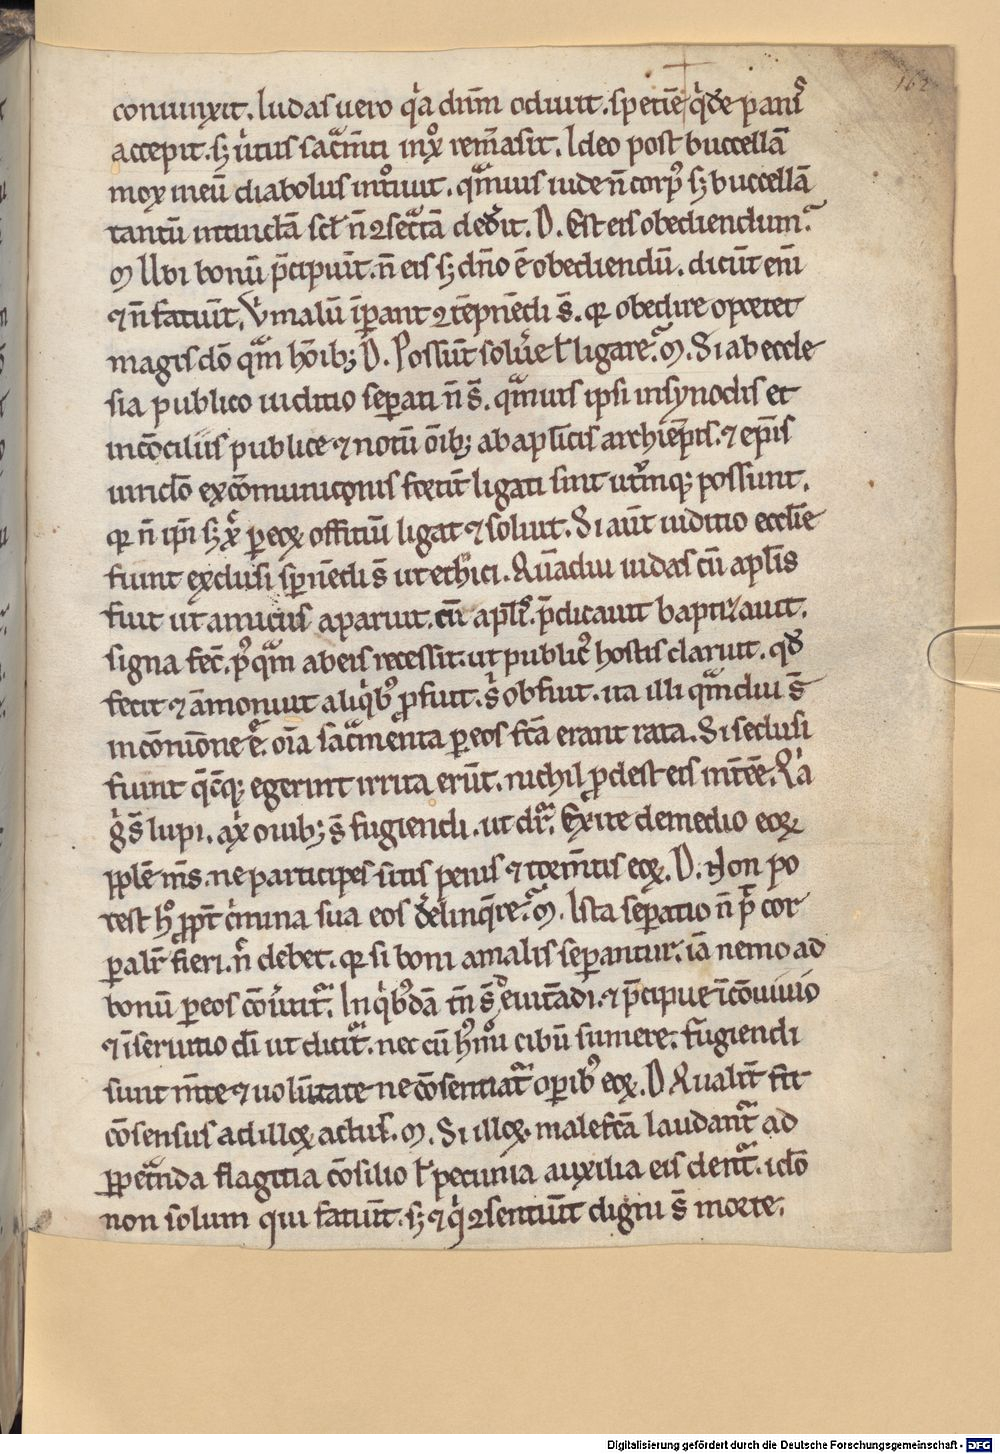 162
coniunxit. Iudas uero q̓a dn̄m odiuit. speciē q̓dē panis
accepit. sꝫ uirtus sacm̄ti in xp̄o remāsit. Ideo post buccellā
mox in eū diabolus intͦiuit. qͣmuis iude n̄ corpꝰ sꝫ buccellā
tantū intinctā scł n̄ ꝯsecͣtā dederit. D. Est eis obediendum.
M Ubi bonū p̄cipiūt. n̄ eis sꝫ dn̄o ē obediendū. dicūt eni̅
⁊ n̄ faciūt. Vͥ malū īꝑant ꝯtēpnēdi s̄. qꝛ obedire oportet
magis dō qͣm hōibꝫ D. Possūt soluͤe ł ligare. M. Si ab eccle
sia publico iudicio seꝑati n̄ s̄. qͣmuis ipsi in synodis et
in cōciliis publice ⁊ notū ōibꝫ ab apl̄icis archiep̄is. ⁊ ep̄is
uinclō excōmunicꝯnis fortit̄ ligati sint utͥmqꝫ possunt.
qꝛ n̄ ip̄i sꝫ xp̄c ꝑ eoꝝ officiū ligat ⁊ soluit. Si aūt iuditio eccl̄ie
fiunt exclusi spn̄ēdi s̄ ut ethnici. Quādiu iudas cū apl̄is
fuit ut amicus aparuit. cū apl̄is p̄dicauit baptizauit.
signa fec̄. pꝰqͣm ab eis recessit. ut publicꝰ hostis claruit. qđ
fecit ⁊ āmonuit aliqͥbꝰ ꝓfuit. sͥ obfuit. ita illi qͣmdiu s̄
in cōmōne eccl̄e. oīa sacͣmenta ꝑ eos fc̄a erant rata. Si seclusi
fiunt qͣcūqꝫ egerint irrita erūt. nichil ꝓdest eis in mtēe. Qͥa
gͥ s̄ lupi. a xͥ ouibꝫ s̄ fugiendi. ut drͣ. Exite de medio eoꝝ
ppl̄e m̄s. ne participes sitis penis ⁊ torm̄tis eoꝝ. D. Non po
test hͦ ꝓpt̄ cͥmina sua eos derelinqͥre. M. Ista seꝑatio n̄ p̄t cor
ꝑalit̄ fieri. n̄ debet. qꝛ si boni a malis seꝑantur. iā nemo ad
bonū ꝑ eos cōuertitͬ. In qͥbꝰdā tn̄ s̄ deuitādi. ⁊ p̄cipue ī cōuiuio
⁊ ī seruitio dī ut dicitͬ. nec cū hꝰmͦi cibū sumere. fugiendi
sunt m̄te ⁊ uolūtate ne cōsentiatͬ oꝑibꝰ eoꝝ. D Qualit̄ fit
cōsensus ad illoꝝ actus. M. Si illoꝝ. malefc̄a laudantͬ ad
ꝑpetͣnda flagitia cōsilio ł pecunia auxilia eis dentͬ. idō
non solum qui faciūt. sꝫ ⁊ qͥ ꝯsentiūt digni s̄ morte.
Digitalisierung gefördert durch die Deutsche Forschungsgemeinschaft - DFG